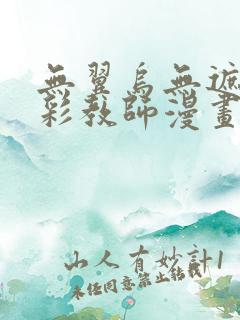 無翼烏無遮
彩教師漫畫
山人有妙計1
未任同意禁止轉載